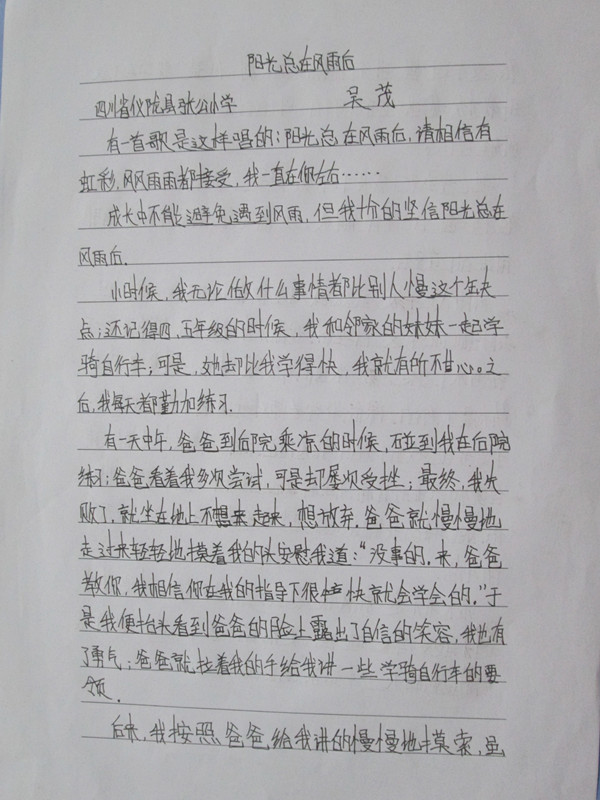 阳光总在风雨后
四川省仪陇县张公小学 吴茂
有一首歌是这样唱的：阳光总在风雨后，请相信有
虹彩，风风雨雨都接受，我一直在你左右……
成长中不能避免遇到风雨，但我十分的坚信阳光总在
风雨后.
小时候，我无论做什么事情都比别人慢这个缺
点；还记得四.五年级的时候，我和邻家的妹妹一起学
骑自行车；可是，她却比我学得快，我就有所不甘心。之
后，我每天都勤加练习.
有一天中午，爸爸到后院乘凉的时候，碰到我在后院
练习；爸爸看着我多次尝试，可是却屡次受挫；最终，我失
败了，就坐在地上不想来起来，想放弃.爸爸就慢慢地
走过来轻轻地摸着我的头安慰我道：“没事的.来，爸爸
教你，我相信你在我的指导下很快就会学会的.”于
是我便抬头看到爸爸的脸上露出了自信的笑容，我也有
了勇气；爸爸就拉着我的手给我讲一些学骑自行车的要
领.
后来，我按照爸爸给我讲的慢慢地摸索，虽